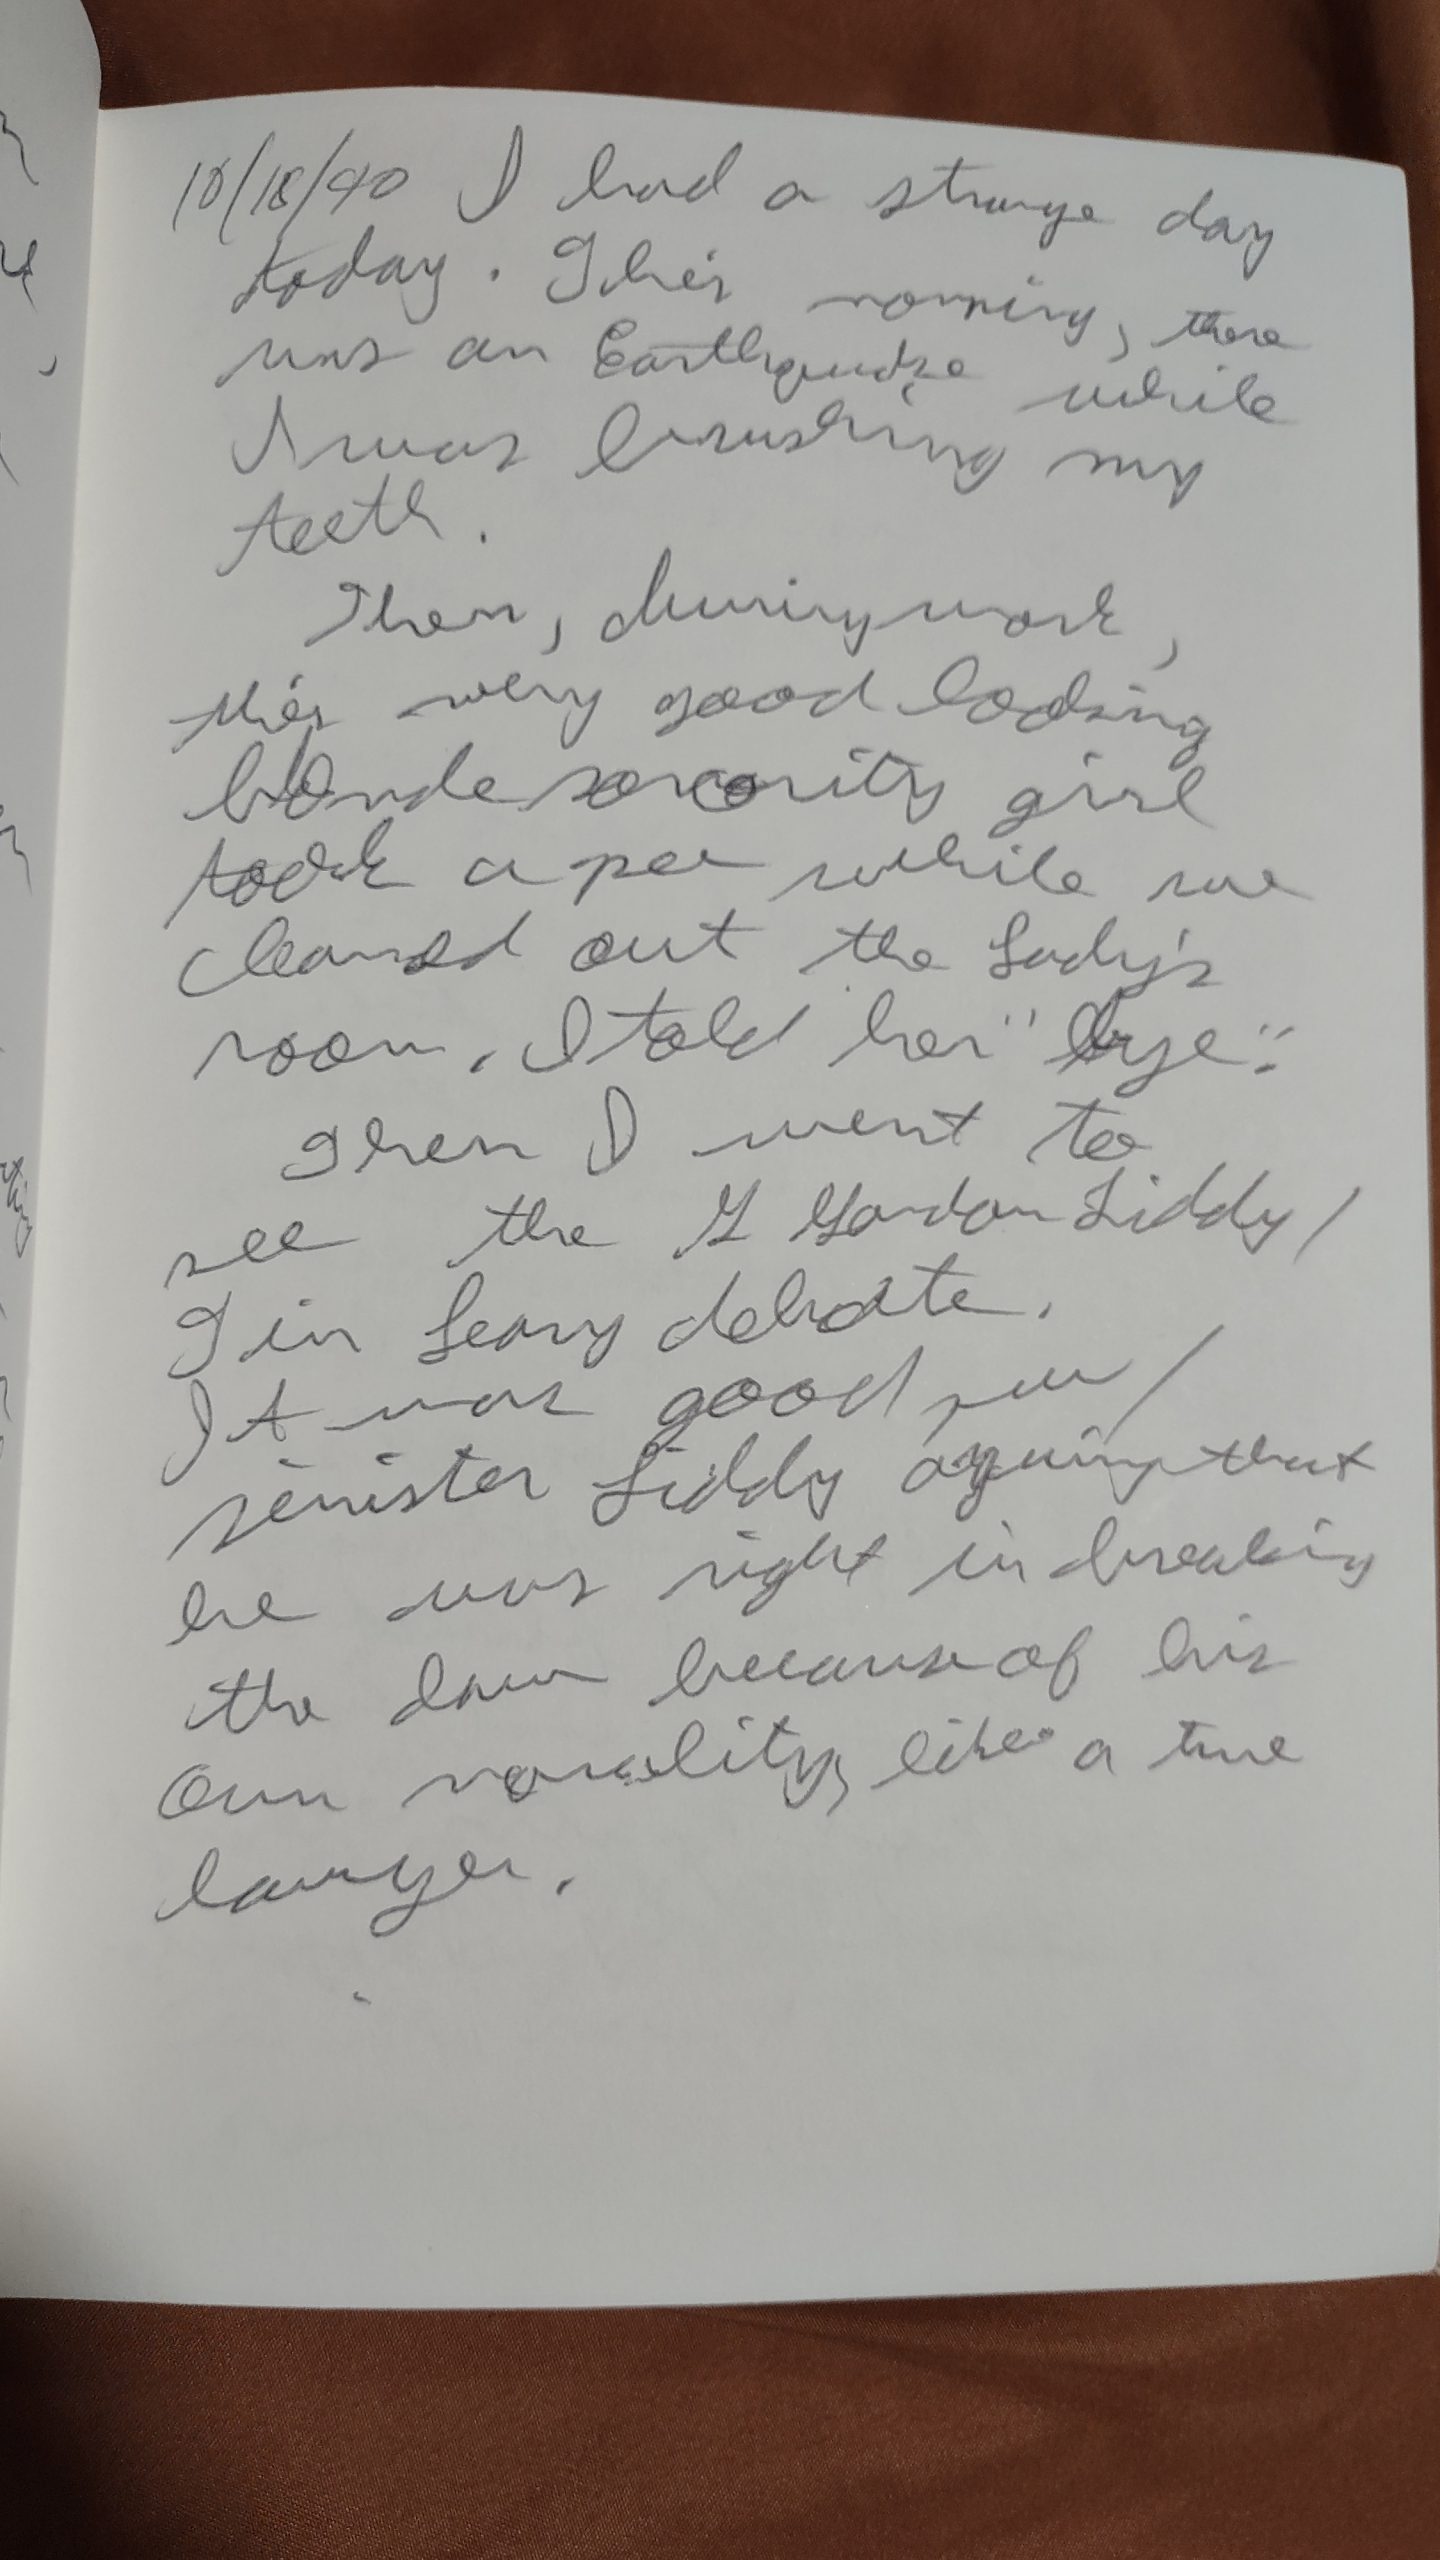 10/18/90 I had a strange day
today. This morning, there
was an Earthquake while
I was brushing my
teeth.
Then, during work,
this very good looking
blonde sorority girl
took a pee while we
cleaned out the Lady's
room. I told her "bye".
Then I went to
see the G Gordon Liddy/
Tim Leary debate.
It was good /
sinister Liddy arguing that
he was right in breaking
the law because of his
own morality, like a true
lawyer.